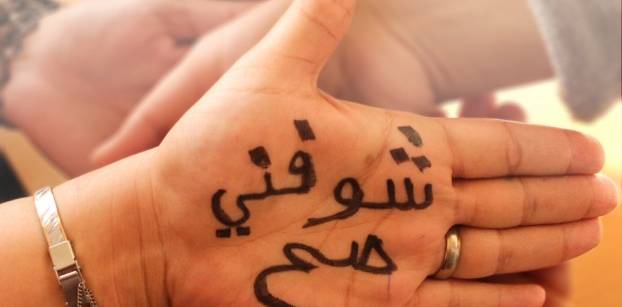 شوفني
صح